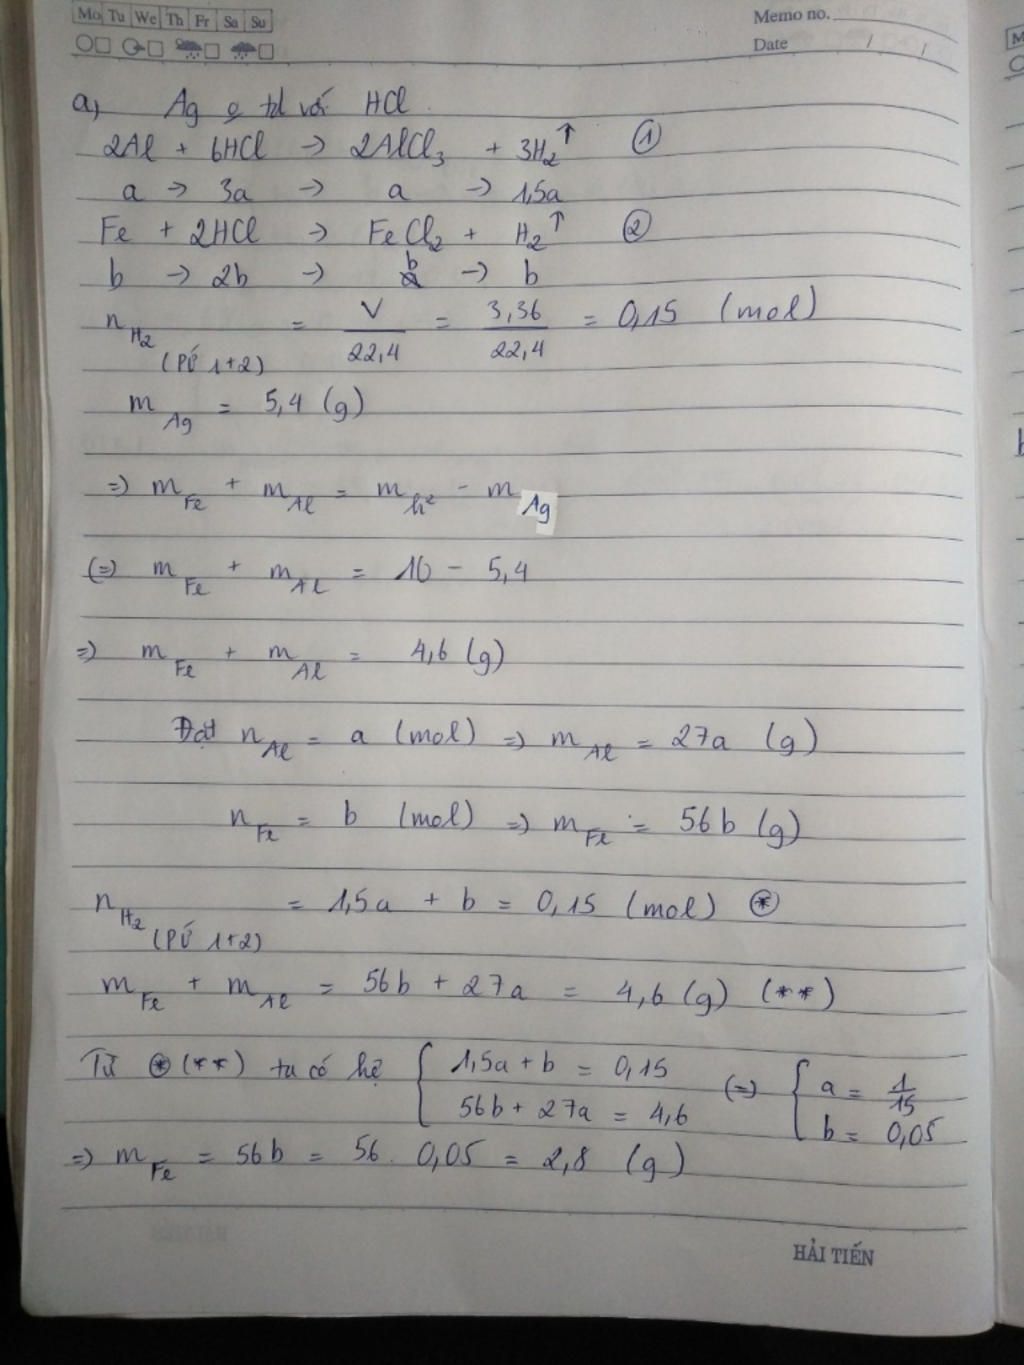 Mo Tu We Th Fr Sa Su
Memo no.
Date / /
a, Ag ko td với HCl
2Al + 6HCl → 2AlCl₃ + 3H₂↑ ①
a → 3a → a → 1,5a
Fe + 2HCl → FeCl₂ + H₂↑ ②
b → 2b → b → b
n H₂ (PỨ 1+2) = V/22,4 = 3,36/22,4 = 0,15 (mol)
m Ag = 5,4 (g)
=> m Fe + m Al = m h² - m Ag
(=) m Fe + m Al = 10 - 5,4
=) m Fe + m Al = 4,6 (g)
Đặt n Al = a (mol) => m Al = 27a (g)
n Fe = b (mol) => m Fe = 56b (g)
n H₂ (PỨ 1+2) = 1,5a + b = 0,15 (mol) (*)
m Fe + m Al = 56b + 27a = 4,6 (g) (**)
Từ (*) (**) ta có hệ { 1,5a + b = 0,15 (=) { a = 1/15
56b + 27a = 4,6 b = 0,05
=) m Fe = 56b = 56 . 0,05 = 2,8 (g)
HẢI TIẾN